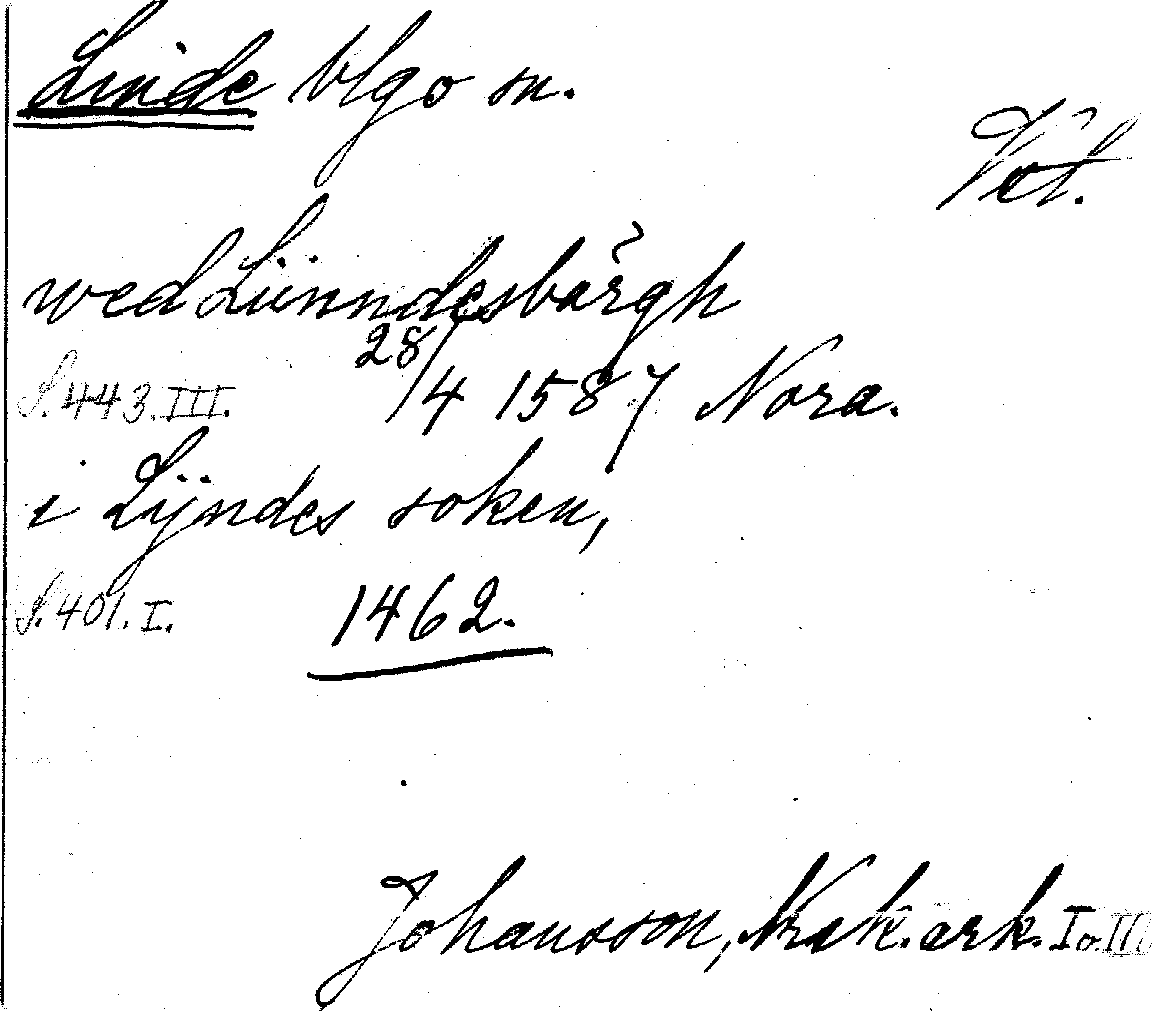 Linde blgo sn.
Vst.
wed Lünndesbärgh
S. 443. III. 28/4 1587 Nora.
i Lÿndes soken,
S. 401. I. 1462.
Johansson, Nrsk. ark. I o. III.